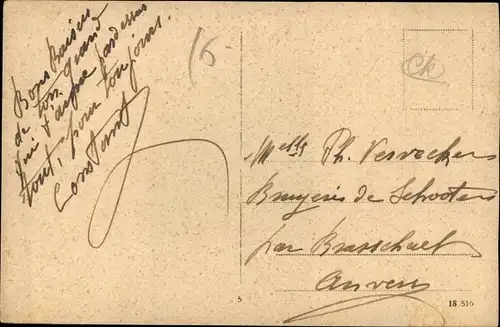 Bons Baisers
de ton grand
qui t'aime par dessus
tout, pour toujours.
Constant
16-
Ck
Melle Ph. Vervackers
Bruyères de Schooten
par Brasschaet
Anvers
5
18 516